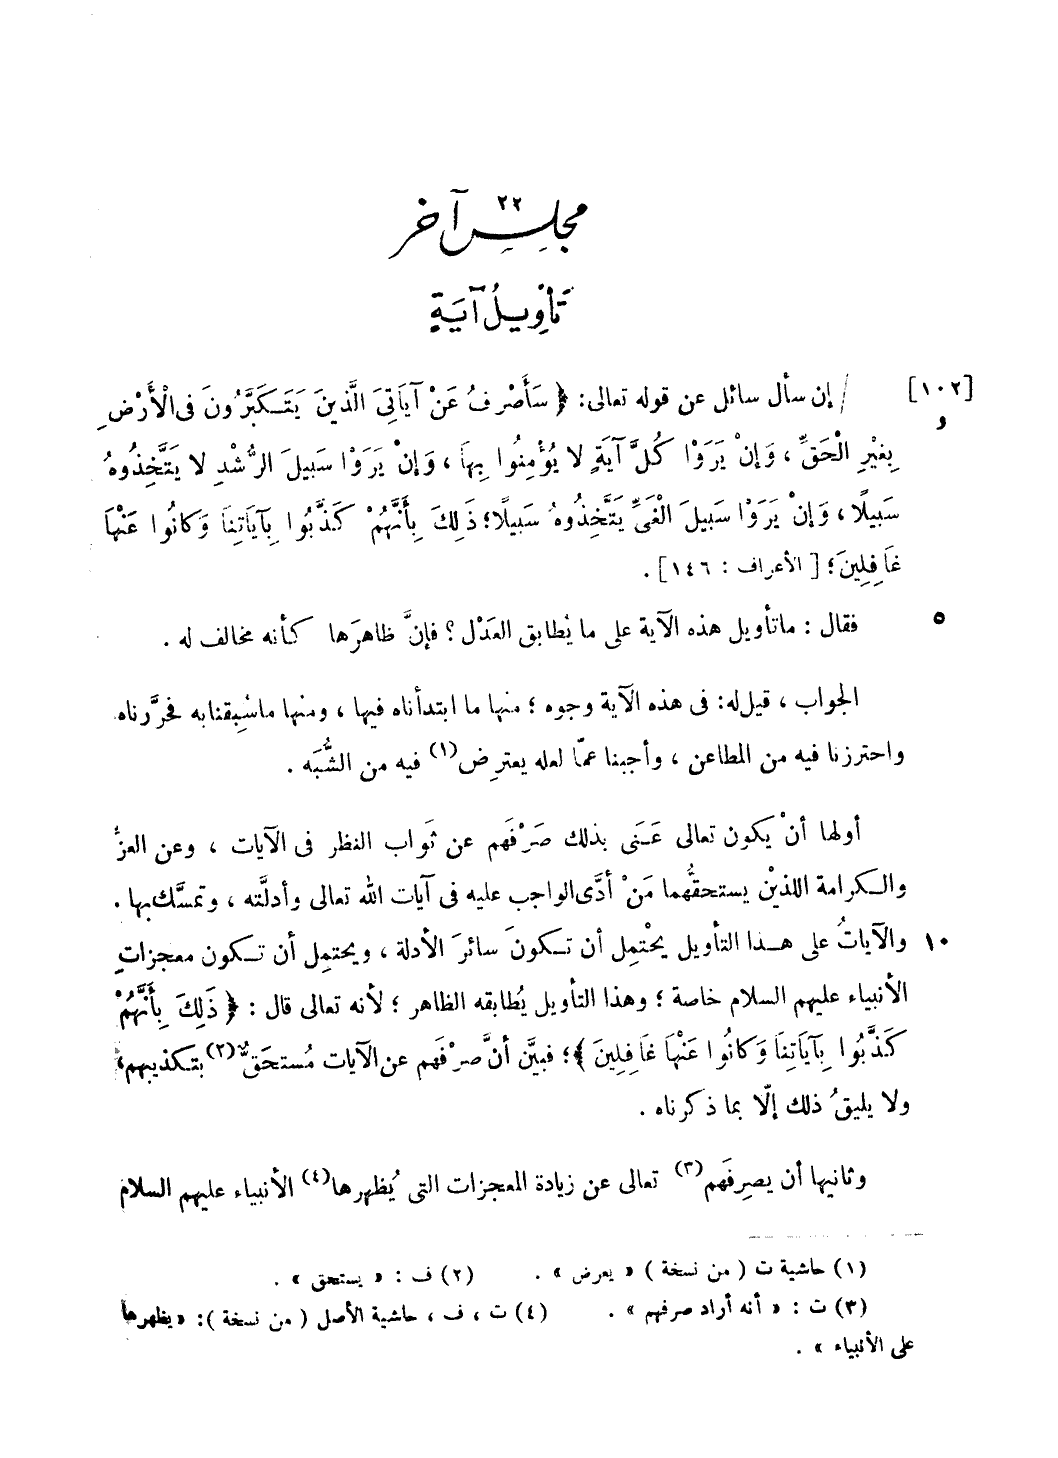 ٢٢
مجلس آخر
تَأْوِيلُ آيَةٍ
[١٠٢ و] / إن سأل سائل عن قوله تعالى: ﴿ سَأَصْرِفُ عَنْ آيَاتِىَ الَّذِينَ يَتَكَبَّرُونَ فى الْأَرْضِ
بِغَيْرِ الْحَقِّ ، وَإِنْ يَرَوْا كُلَّ آيَةٍ لا يُؤْمِنُوا بِهَا ، وَإِنْ يَرَوْا سَبِيلَ الرُّشْدِ لا يَتَّخِذُوهُ
سَبِيلًا ، وَإِنْ يَرَوْا سَبِيلَ الْغَىِّ يَتَّخِذُوهُ سَبِيلًا؛ ذَلِكَ بِأَنَّهُمْ كَذَّبُوا بِآيَاتِنَا وَكَانُوا عَنْهَا
غَافِلِينَ؛ [ الأعراف : ١٤٦] .
٥ فقال : ماتأويل هذه الآية على ما يُطابق العَدْل ؟ فإنَّ ظاهرَها كأنه مخالف له .
الجواب ، قيل له: فى هذه الآية وجوه ؛ منها ما ابتدأناه فيها ، ومنها ماسُبِقنا به فحرَّرناه
واحترزنا فيه من المطاعن ، وأجبنا عمّا لعله يعترِض(١) فيه من الشُّبَه .
أولها أنْ يكون تعالى عَـنَى بذلك صَرْفَهم عن ثَواب النظر فى الآيات ، وعن العزُّ
والـكرامة اللذيْن يستحقُّهما مَنْ أدَّى الواجب عليه فى آيات الله تعالى وأدلَّته ، وتمسَّك بها .
١٠ والآياتُ على هـذا التأويل يحْتمِل أن تـكونَ سائرَ الأدلة ، ويحتمِل أن تـكون معجزاتِ
الأنبياء عليهم السلام خاصة ؛ وهذا التأويل يُطابقه الظاهر ؛ لأنه تعالى قال : ﴿ ذَلِكَ بِأَنَّهُمْ
كَذَّبُوا بِآيَاتِنَا وَكَانُوا عَنْهَا غَافِلِينَ ﴾؛ فبيَّن أنَّ صرْفَهم عن الآيات مُستحَقٌّ(٢) بتـكذيبهم؛
ولا يليقُ ذلك إلّا بما ذكرناه .
وثانيها أن يصرِفَهم(٣) تعالى عن زيادة المعجزات التى يُظهرها(٤) الأنبياء عليهم السلام
(١) حاشية ت ( من نسخة ) « يعرض » . (٢) ف : « يستحق » .
(٣) ت : « أنه أراد صرفهم » . (٤) ت ، ف ، حاشية الأصل ( من نسخة ): « يظهرها
على الأنبياء » .